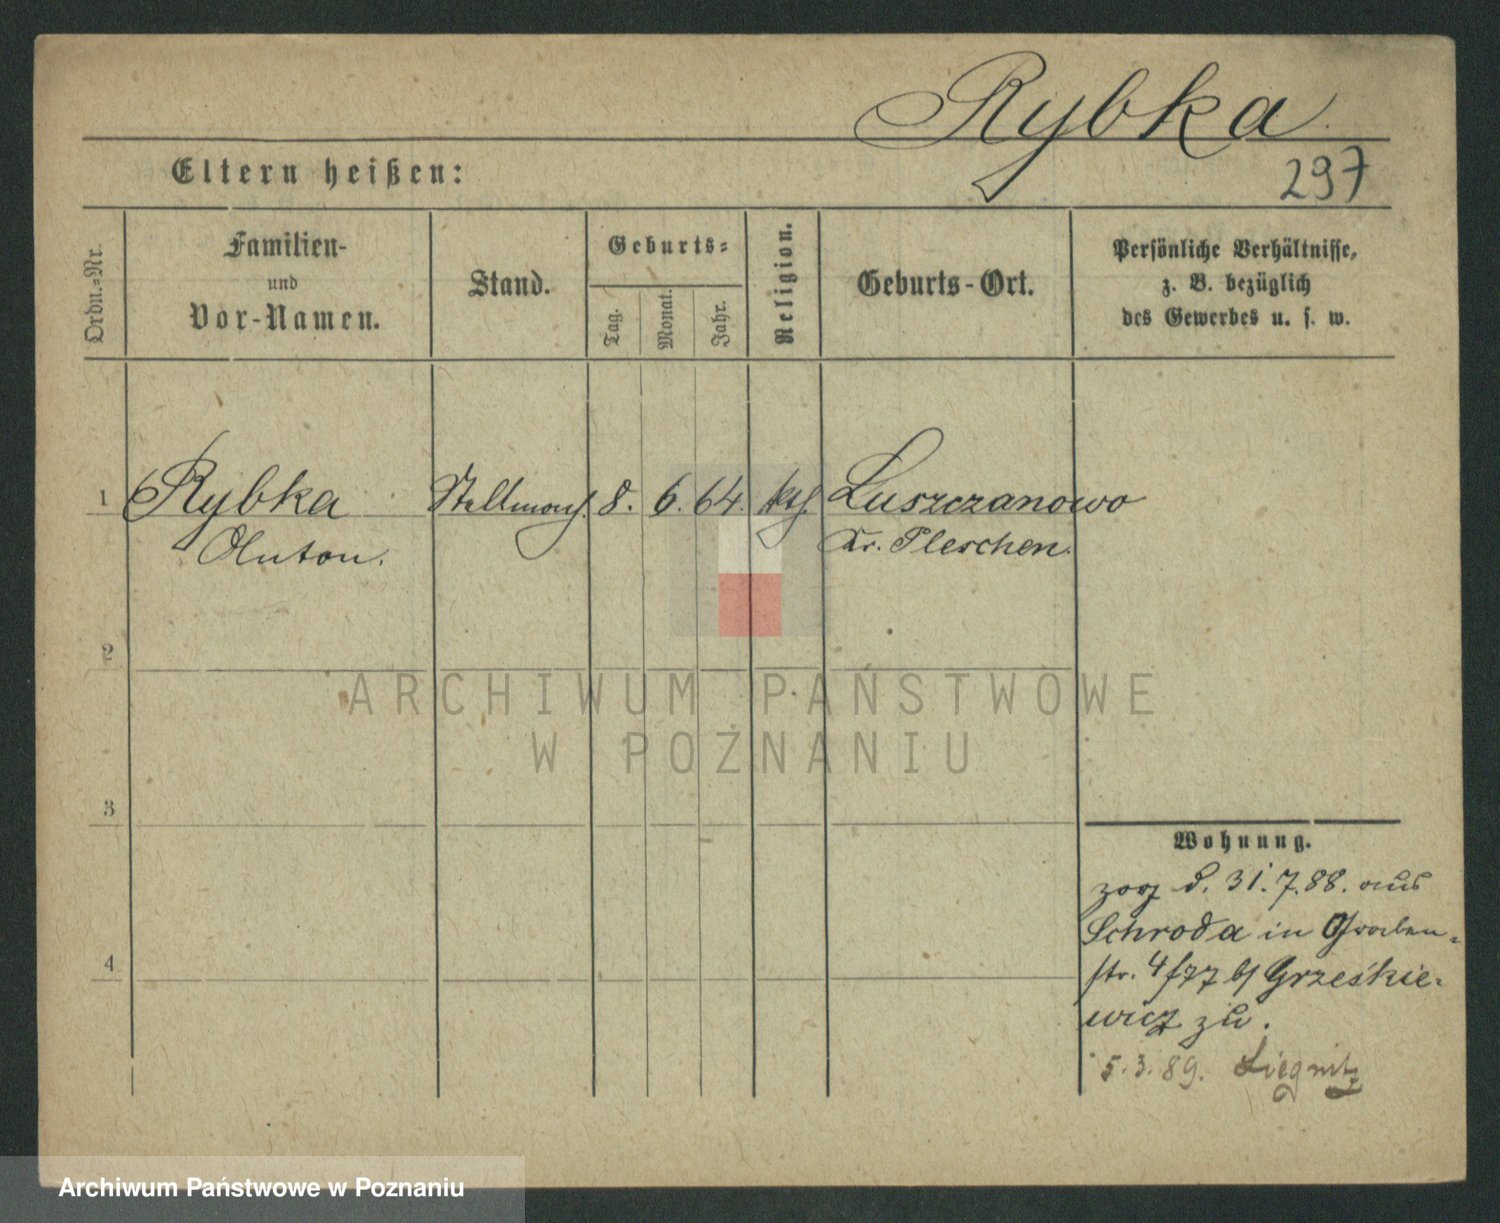 Rybka
297
Eltern heißen:
Ordn.-Nr.
Familien-
und
Vor-Namen.
Stand.
Geburts-
Tag.
Monat.
Jahr.
Religion.
Geburts-Ort.
Persönliche Verhältnisse,
z. B. bezüglich
des Gewerbes u. s. w.
1 Rybka Stellmach. 8. 6. 64. kth Luszczanowo
Anton. Kr. Pleschen.
2
ARCHIWUM PAŃSTWOWE
W POZNANIU
3
Wohnung.
zog d. 31.7.88. aus
Schroda in Graben-
4
str. 4 b/ Grześkie-
wicz zu.
5.3.89. Liegnitz
Archiwum Państwowe w Poznaniu